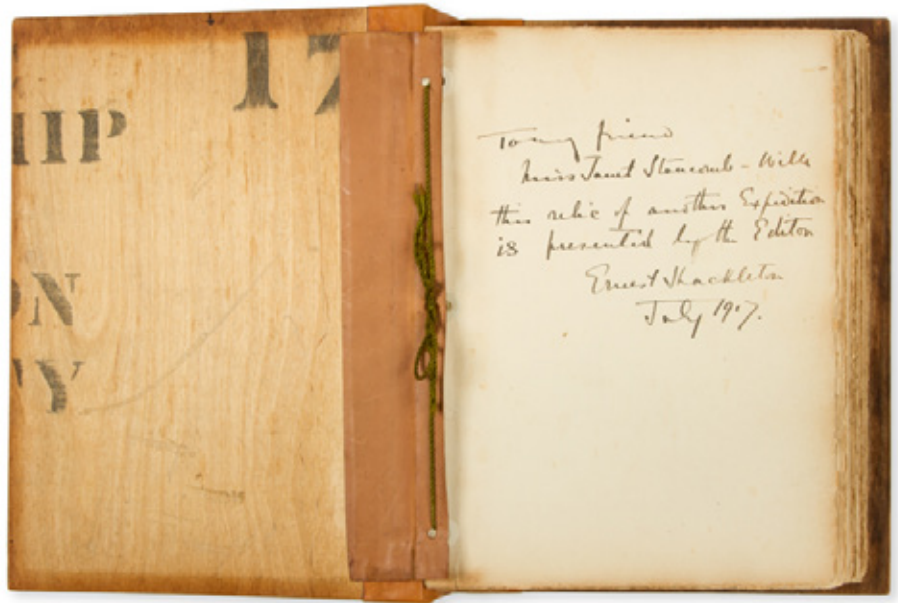 17
HIP
ON
Y
To my friend
Miss Janet Stancomb-Wills
this relic of another Expedition
is presented by the Editor
Ernest Shackleton
July 1917.